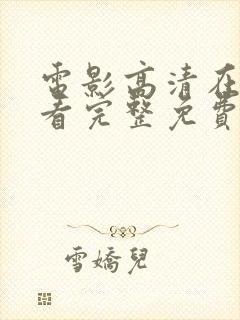 電影高清在
看完整免費
雪嬌兒